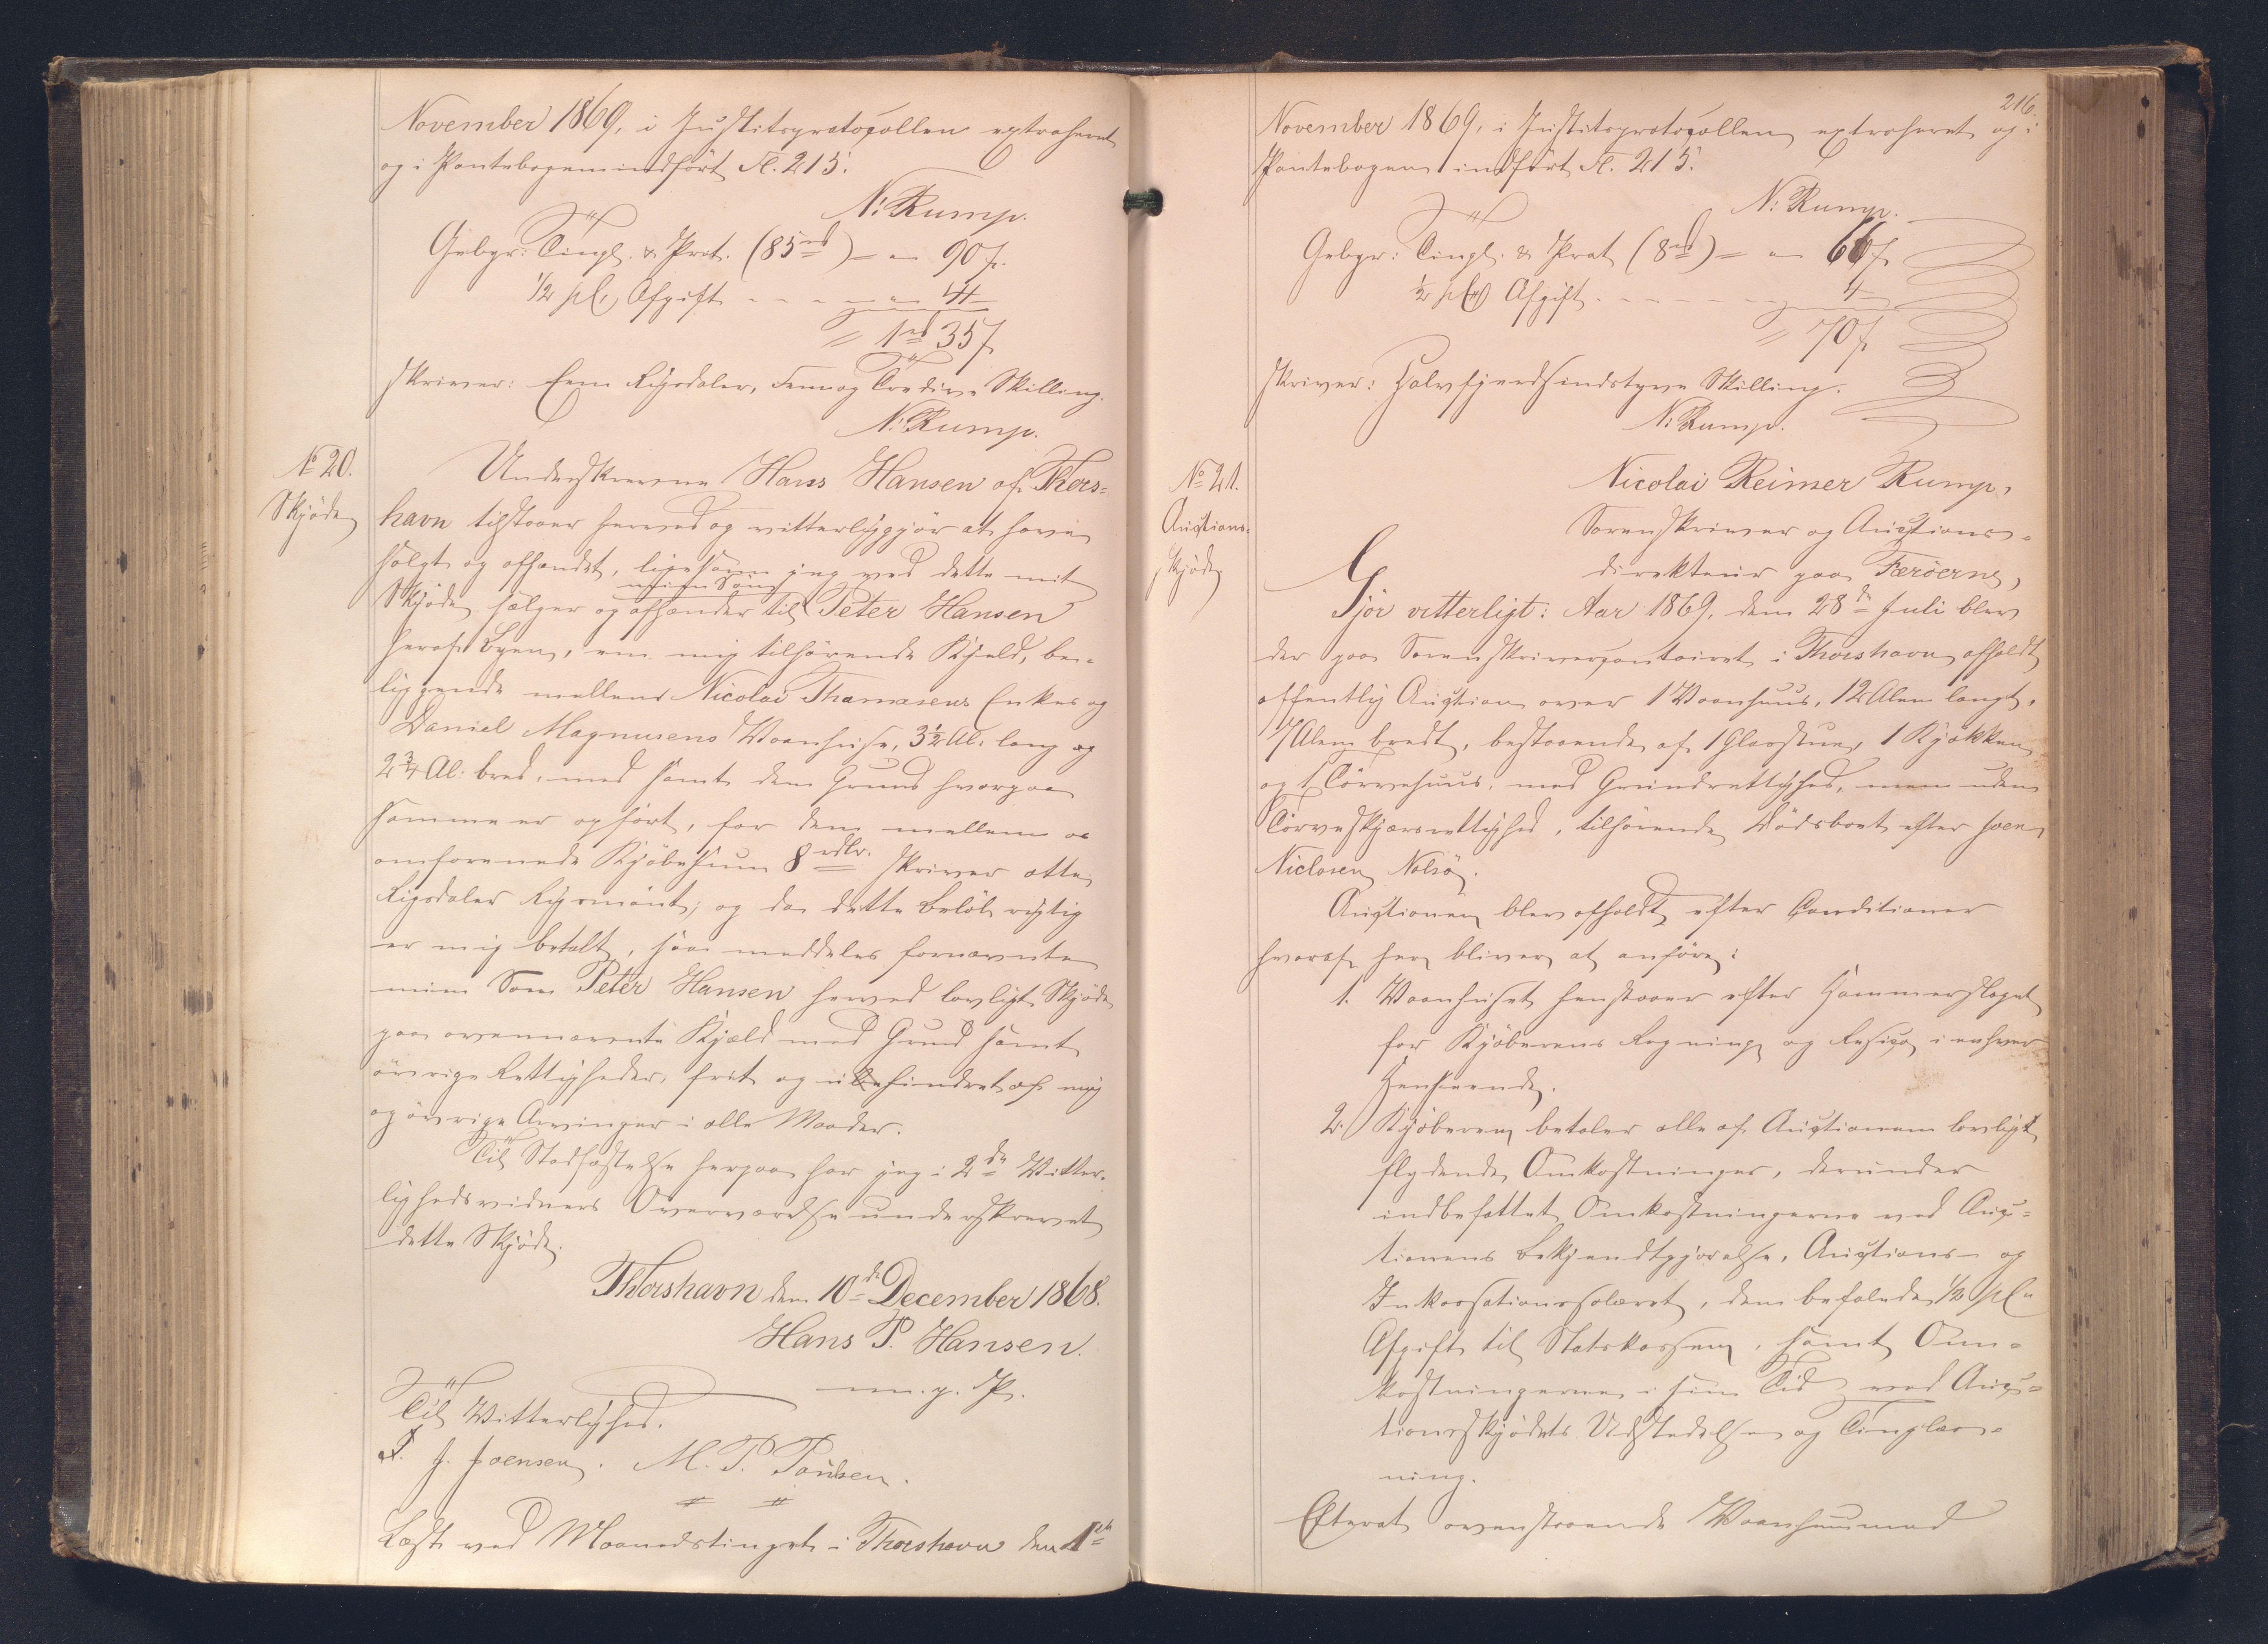 November 1869, i Justitsprotocollen extraheret
og i Pantebogen indført Fl. 215.
N: Rump.
Gebyr: Tingl. & Prot. (85 rd) = " 90 ß.
1/2 pCt. Afgift - - - - " 41 -
= 1 rd 35 ß
skriver: Een Rigsdaler, Fem og Tredive Skilling.
N: Rump.
No 20.
Skjøde
Underskrevne Hans Hansen af Thors=
havn tilstaaer herved og vitterliggjør at have
solgt og afhændet, ligesom jeg ved dette mit
Skjøde sælger og afhænder til min Søn Peter Hansen
heraf Byen, en mig tilhørende Kjeld, be-
liggende mellem Nicolai Thomasens Enkes og
Daniel Magnusens Vaanhuse, 3 1/2 Al: lang og
2 3/4 Al: bred, med samt dem Grund hvorpaa
samme er opført, for den mellem os
omforenede Kjøbesum 8 rdlr. skriver otte
Rigsdaler Rigsmønt; og da dette Beløb rigtig
er mig betalt, saa meddeles fornævnte
min Søn Peter Hansen herved lovligt Skjøde
paa ovennævnte Kjæld med Grund samt
øvrige Rettigheder, frit og ubehindret af mig
og øvrige Arvinger i alle Maader.
Til Stadfæstelse herpaa har jeg i 2de Vitter-
lighedsvidners Overværelse underskrevet
dette Skjøde.
Thorshavn den 10de December 1868.
Hans P. Hansen.
m. p. P.
Til Vitterlighed.
J. J. Joensen. M. P. Poulsen.
Læst ved Maanedstinget i Thorshavn den 1ste
216.
November 1869, i Justitsprotocollen extraheret og i
Pantebogen indført Fl. 215.
N: Rump.
Gebyr: Tingl. & Prot (8 rd) = " 66 ß
1/2 pCt Afgift - - - - - 4 -
= 70 ß
skriver: Halvfjerdsindstyve Skilling.
N: Rump.
No 21.
Auctions-
skjøde
Nicolai Reimer Rump,
Sorenskriver og Auctions-
direkteur paa Færøerne,
Gjør vitterligt: Aar 1869, den 28de Juli blev
der paa Sorenskrivercontoiret i Thorshavn afholdt
offentlig Auction over 1 Vaanhuus, 12 Alen langt,
7 Alen bredt, bestaaende af 1 Glasstue, 1 Kjøkken
og 1 Tørvehuus, med Grundrettighed, men uden
Tørveskjærsrettighed, tilhørende Dødsboet efter Joen
Niclasen Nolsø.
Auctionen blev afholdt efter Conditioner
hvoraf her bliver at anføre:
1. Vaanhuset henstaaer efter Hammerslaget
for Kjøberens Regning og Risico i enhver
Henseende.
2. Kjøberen betaler alle af Auctionen lovligt
flydende Omkostninger, derunder
indbefattet Omkostningerne ved Auc=
tionens Bekjendtgjørelse, Auctions- og
Inkassationssalæret, den befalede 1/2 pCt
Afgift til Statskassen, samt Om=
kostningerne i sin Tid ved Auc=
tionsskjødets Udstedelse og Tinglæs=
ning.
Efterat ovenstaaende Vaanhuus med